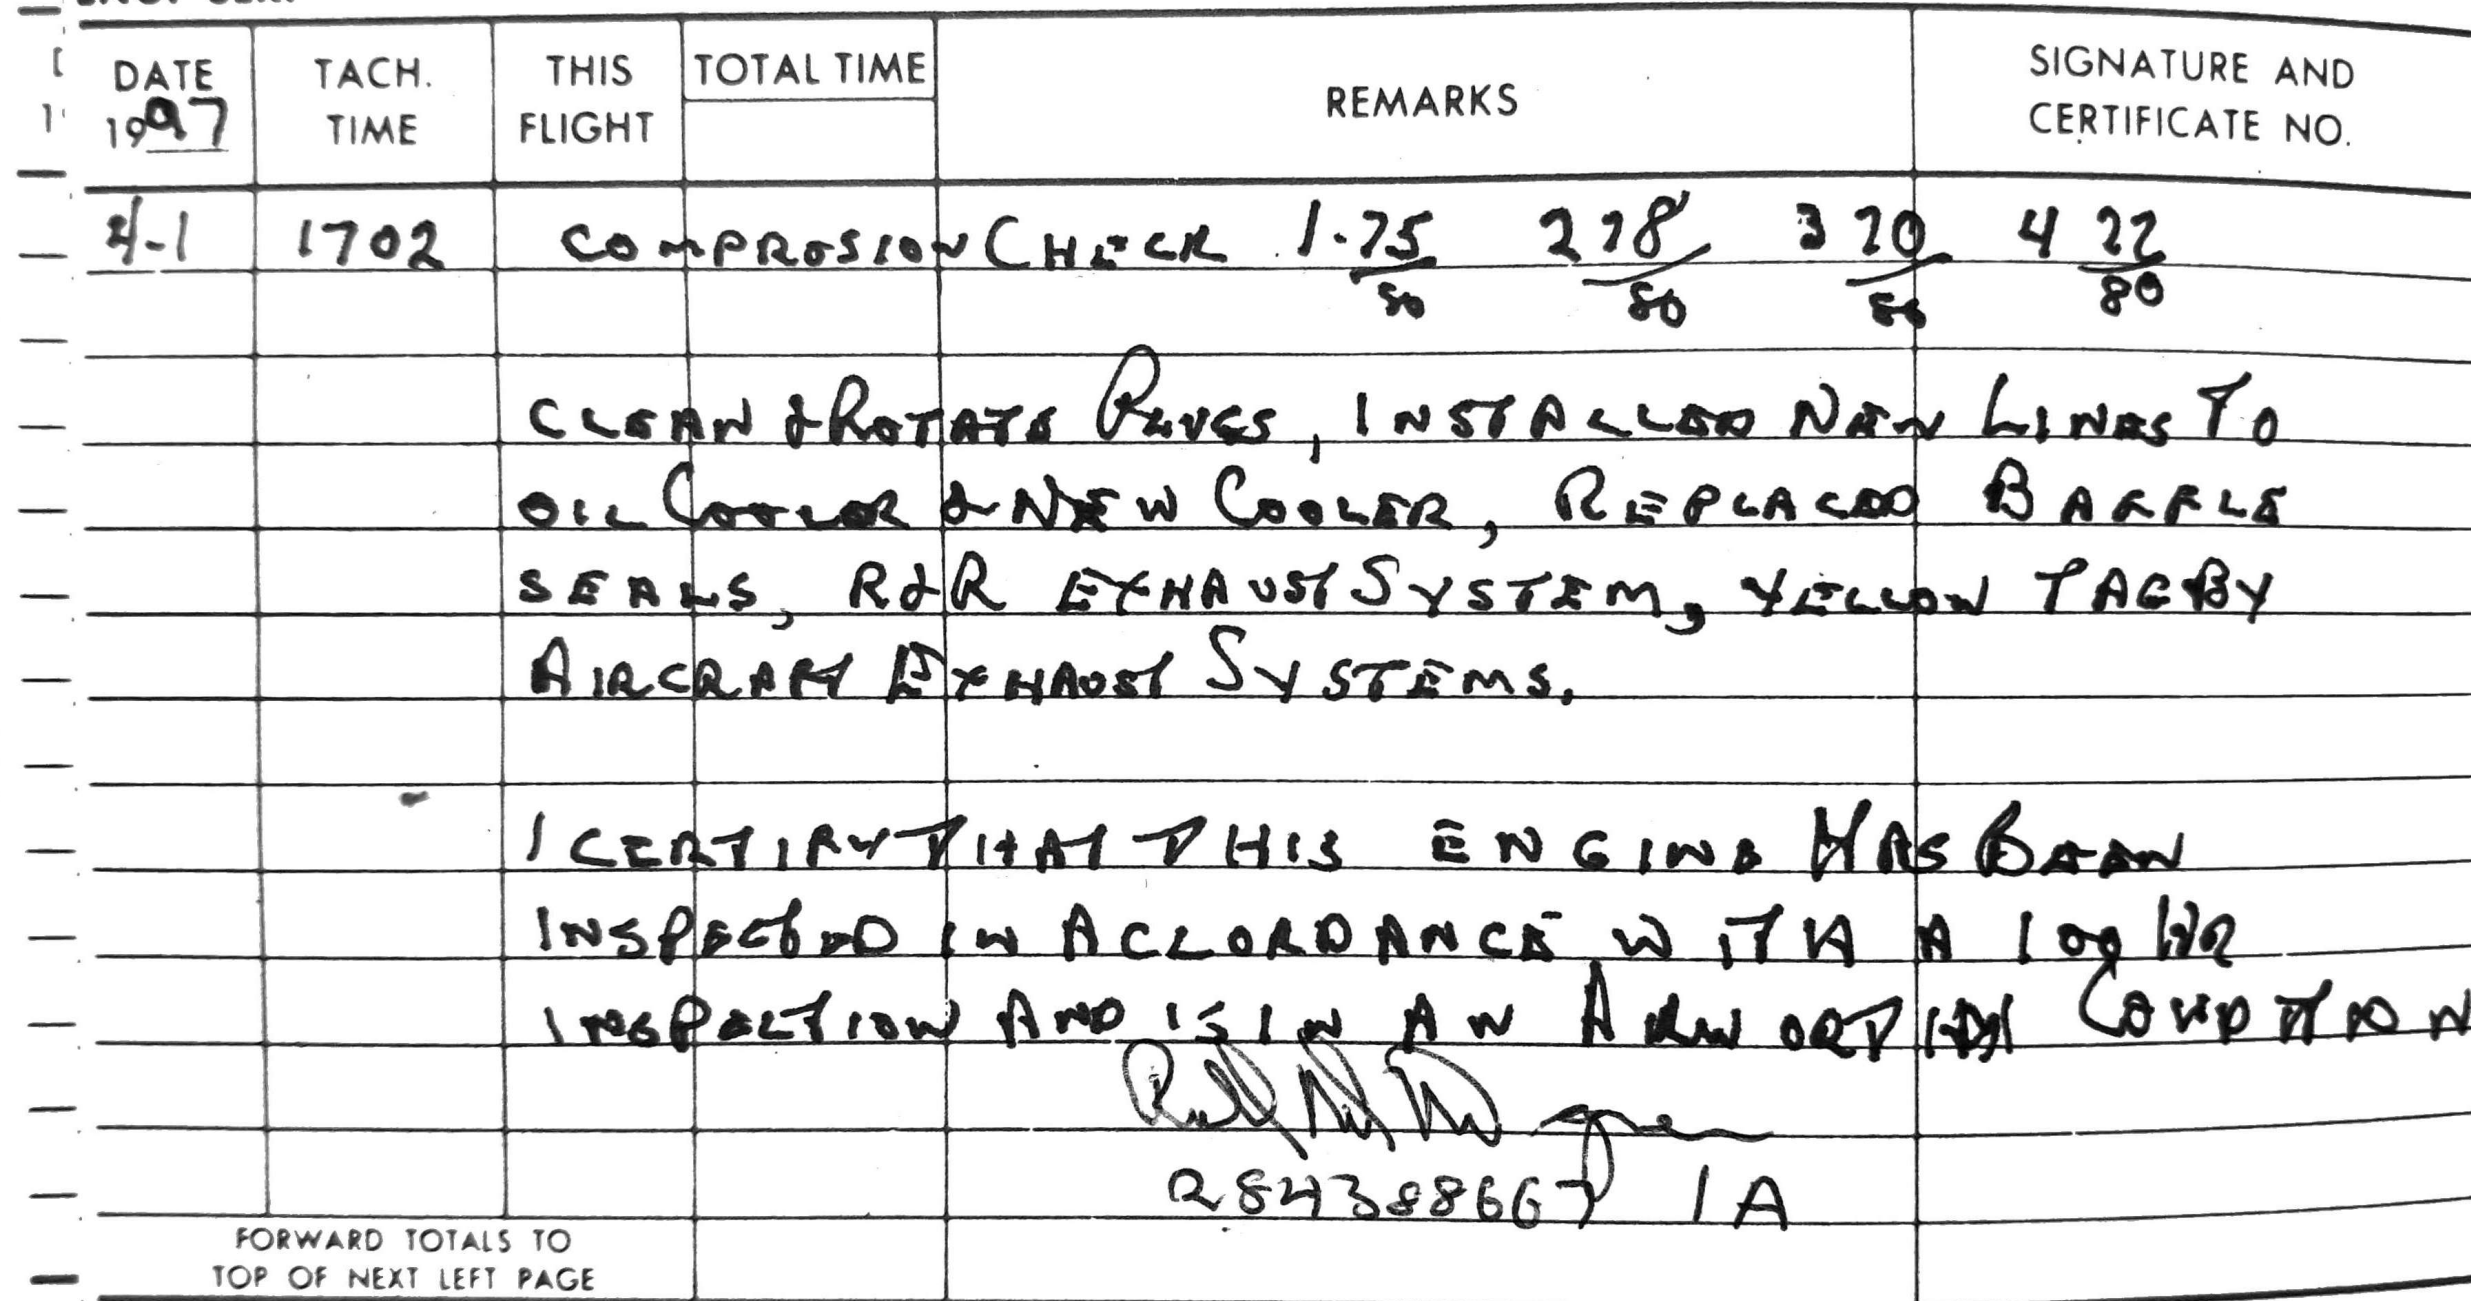 DATE TACH. THIS TOTAL TIME REMARKS SIGNATURE AND
1997 TIME FLIGHT CERTIFICATE NO.
4-1 1702 COMPROSION CHECK 1.75/80 2 78/80 3 70/80 4 72/80
CLEAN & ROTATE PLUGS, INSTALLED NEW LINES TO
OIL COOLER & NEW COOLER, REPLACED BAFFLE
SEALS, R&R EXHAUST SYSTEM, YELLOW TAG BY
AIRCRAFT EXHAUST SYSTEMS.
I CERTIFY THAT THIS ENGINE HAS BEEN
INSPECTED IN ACCORDANCE WITH A 100 HR
INSPECTION AND IS IN AN AIRWORTHY CONDITION
284388667 IA
FORWARD TOTALS TO
TOP OF NEXT LEFT PAGE